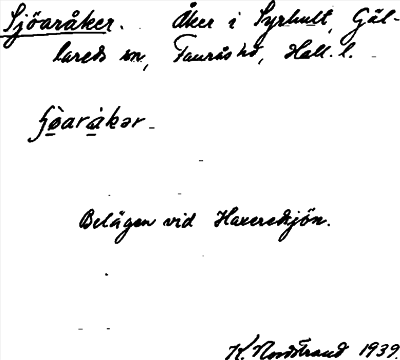 Sjöaråker. Åker i Syrhult, Gäl-
lareds sn, Faurås hd, Hall. l.
ʃöaråkər
Belägen vid Haxeredsjön.
K. Nordstrand 1939.